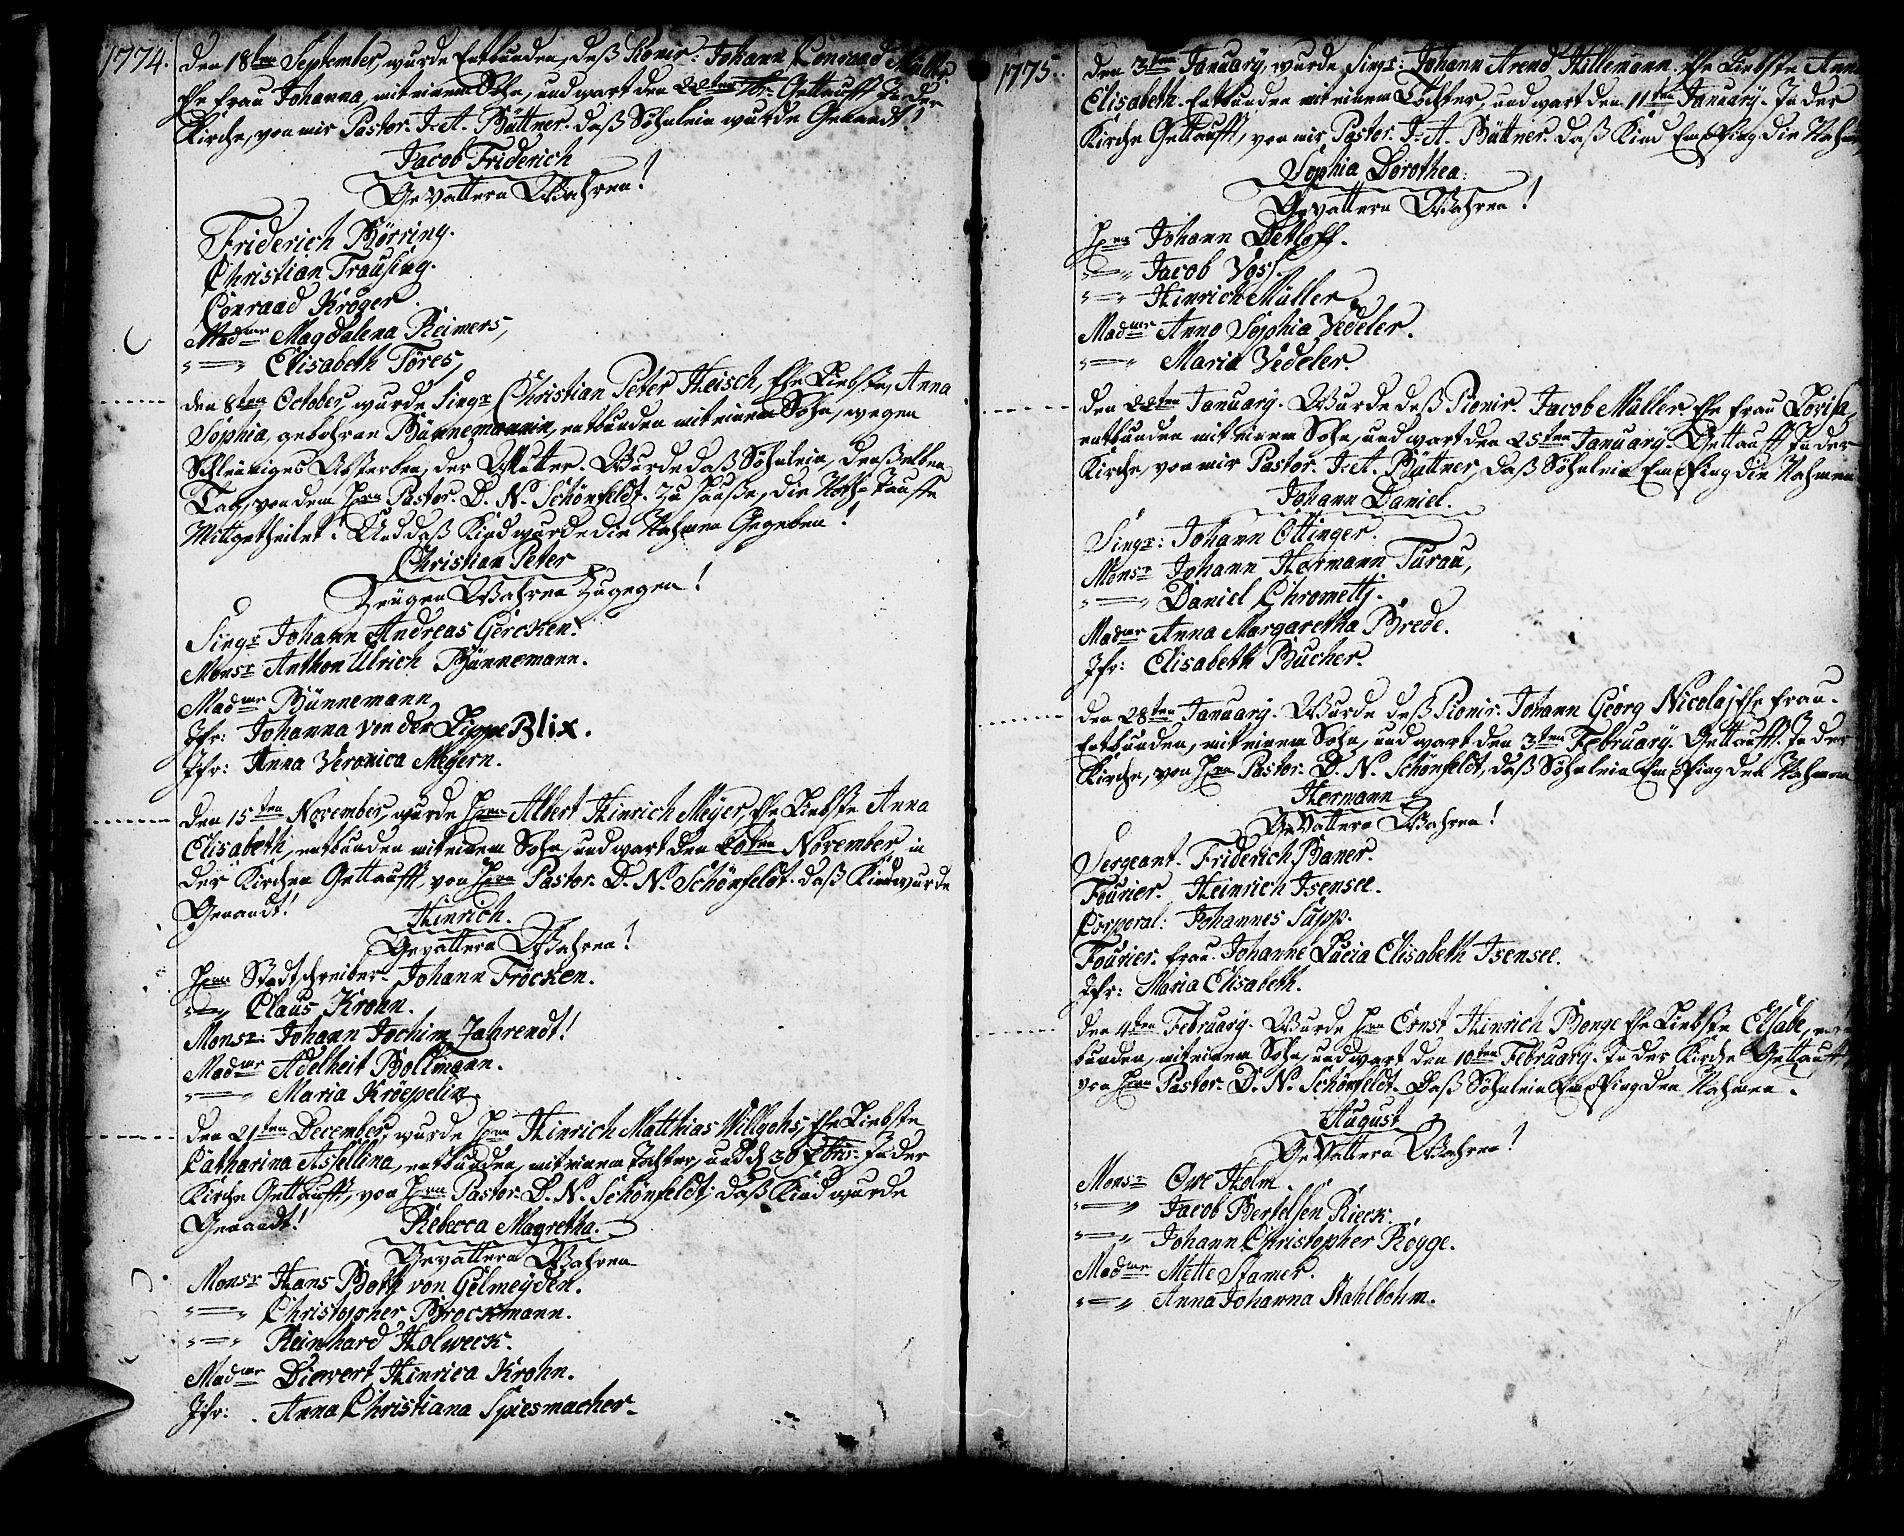 1774. den 18ten September, wurde Entbunden, deß Pionir: Johann Conraad Müller
Ehe frau Johanna, mit einem Sohn, und wart den 22ten Getaufft In der
Kirche, von mir Pastor. J. A. Büttner. daß Söhnlein wurde Genandt!
Jacob Friderich
Gevattern Wahren!
Friderich Börring.
Christian Trausing.
Conraad Kröger.
Madme Magdalena Reimers,
"=" Elisabeth Töres,
den 8ten October, wurde Singr Christian Peter Heisch, Ehe Liebste, Anna
Sophia, gebohrne Bünnemannin, entbunden mit einem Sohn, wegen
Schleüniges Absterben, der Mutter. Wurde daß Söhnlein, denselben
Tag, von dem Hrn Pastor. D. N. Schönfeldt. zu Hauße, die Noth-Tauffe
Mittgetheilet. Und daß Kind wurde die Nahmen Gegeben!
Christian Peter
Zeügen Wahren Zugegen!
Singr Johann Andreas Gercken.
Monsr Anthon Ulrich Bünnemann.
Madme Bünnemann,
Jfr: Johanna von der Lippe Blix.
Jfr: Anna Veronica Meyern.
den 15ten November, wurde Hrn Albert Hinrich Meyer, Ehe Liebste Anna
Elisabeth, entbunden mit einem Sohn, und wart den 20ten November, in
der Kirchen Getaufft, von Hrn Pastor. D. N. Schönfeldt. daß Kind wurde
Genandt!
Hinrich.
Gevattern Wahren!
Hrn Stadtschreiber. Johann Fröcken.
"=" Claus Krohn.
Monsr: Johann Jochim Jahrendt!
Madme Adelheit Bollmann.
"=" Maria Kröepelin.
den 21ten December, wurde Hrn Hinrich Matthias Willgohs, Ehe Liebste
Catharina Assellina, entbunden, mit einem Tochter, und d 30 Xbris: In der
Kirche Getaufft, von Hrn Pastor. D. N. Schönfeldt, daß Kind wurde
Genandt! Rebecca Magretha.
Gevattern Wahren
Monsr Hans Both von Gelmeyden.
"=" Christopher Brockmann.
"=" Reinhard Holweck.
Madme Diewert Hinrica Krohn.
Jfr: Anna Christiana Spiesmacher.
1775. den 3ten January, wurde Singr: Johann Arend Hillemann Ehe Liebste Anna
Elisabeth. Entbunden mit einem Tochter, und wart den 11ten January. In der
Kirche Getaufft, von mir Pastor. J. A. Büttner. daß Kind Empfing die Nahmen
Sophia Dorothea:
Gevattern Wahren!
Hrn Johann Detloff.
"=" Jacob Voss.
"=" Hinrich Müller
Madme Anno Sophia Vedeler.
"=" Maria Vedeler.
den 22ten January. Wurde deß Pionir. Jacob Müller Ehe frau Lovisa,
entbunden mit einem Sohn, und wart den 25ten January. Getaufft In der
Kirche, von mir Pastor. J. A. Büttner, daß Söhnlein Empfing die Nahmen
Johann Daniel.
Singr: Johann Ottinger.
Monsr Johann Hermann Turau,
"=" Daniel Chrometti.
Madme Anna Margaretha Brede.
Jfr: Elisabeth Bucher.
den 28ten January. Wurde deß Pionir. Johann Georg Nicolaj Ehe frau.
Entbunden, mit einem Sohn, und wart den 3ten February. Getaufft. In der
Kirche, von Hrn Pastor. D. N. Schönfeldt, daß Söhnlein Empfing den Nahmen
Hermann
Gevattern Wahren!
Sergeant. Friderich Baner.
Fourier. Heinrich Isensee.
Corporal: Johannes Supp.
Fourier. frau. Johanne Lucia Elisabeth Isensee.
Jfr: Maria Elisabeth.
den 4ten February. Wurde Hrn Ernst Hinrich Bonge Ehe Liebste Elsabe, ent
bunden, mit einem Sohn, und wart den 10ten February. In der Kirche Getaufft,
von Hrn Pastor. D. N. Schönfeldt. daß Söhnlein Empfing den Nahmen.
August
Gevattern Wahren!
Monsr Ove Holm.
"=" Jacob Bertelsen Rieck.
"=" Johann Christopher Rogge.
Madme Mette Stamer.
"=" Anna Johanna Stahlbohm.